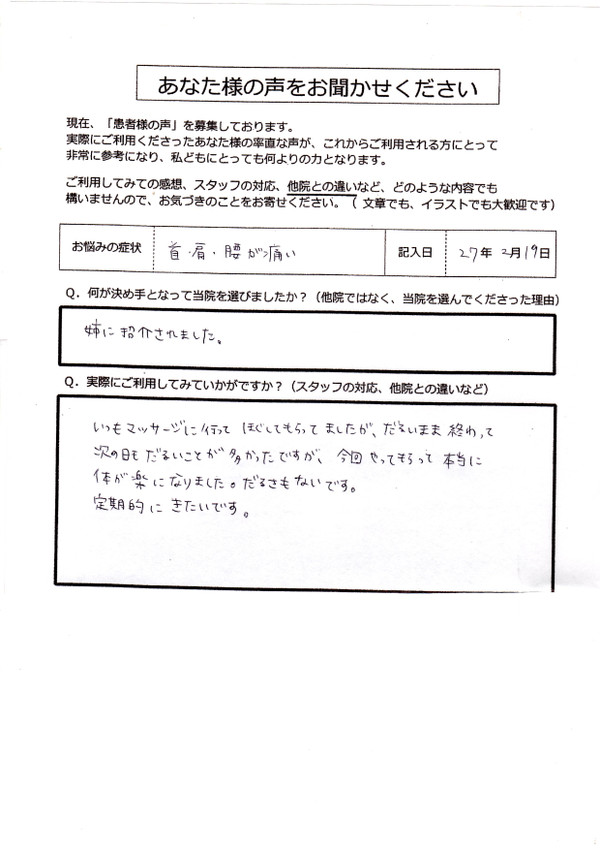 あなた様の声をお聞かせください
現在、「患者様の声」を募集しております。
実際にご利用くださったあなた様の率直な声が、これからご利用される方にとって
非常に参考になり、私どもにとっても何よりの力となります。
ご利用してみての感想、スタッフの対応、他院との違いなど、どのような内容でも
構いませんので、お気づきのことをお寄せください。（ 文章でも、イラストでも大歓迎です）
お悩みの症状 首・肩・腰が痛い 記入日 27年 2月19日
Q．何が決め手となって当院を選びましたか？（他院ではなく、当院を選んでくださった理由）
姉に紹介されました。
Q．実際にご利用してみていかがですか？（スタッフの対応、他院との違いなど）
いつもマッサージに行って ほぐしてもらってましたが、だるいまま 終わって
次の日も だるいことが多かったですが、今回 やってもらって 本当に
体が楽になりました。だるさもないです。
定期的に きたいです。